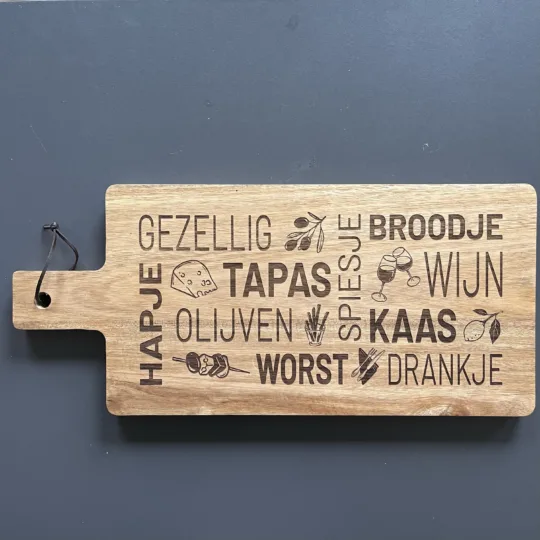 GEZELLIG
BROODJE
HAPJE
TAPAS
SPIESJE
WIJN
OLIJVEN
KAAS
WORST
DRANKJE